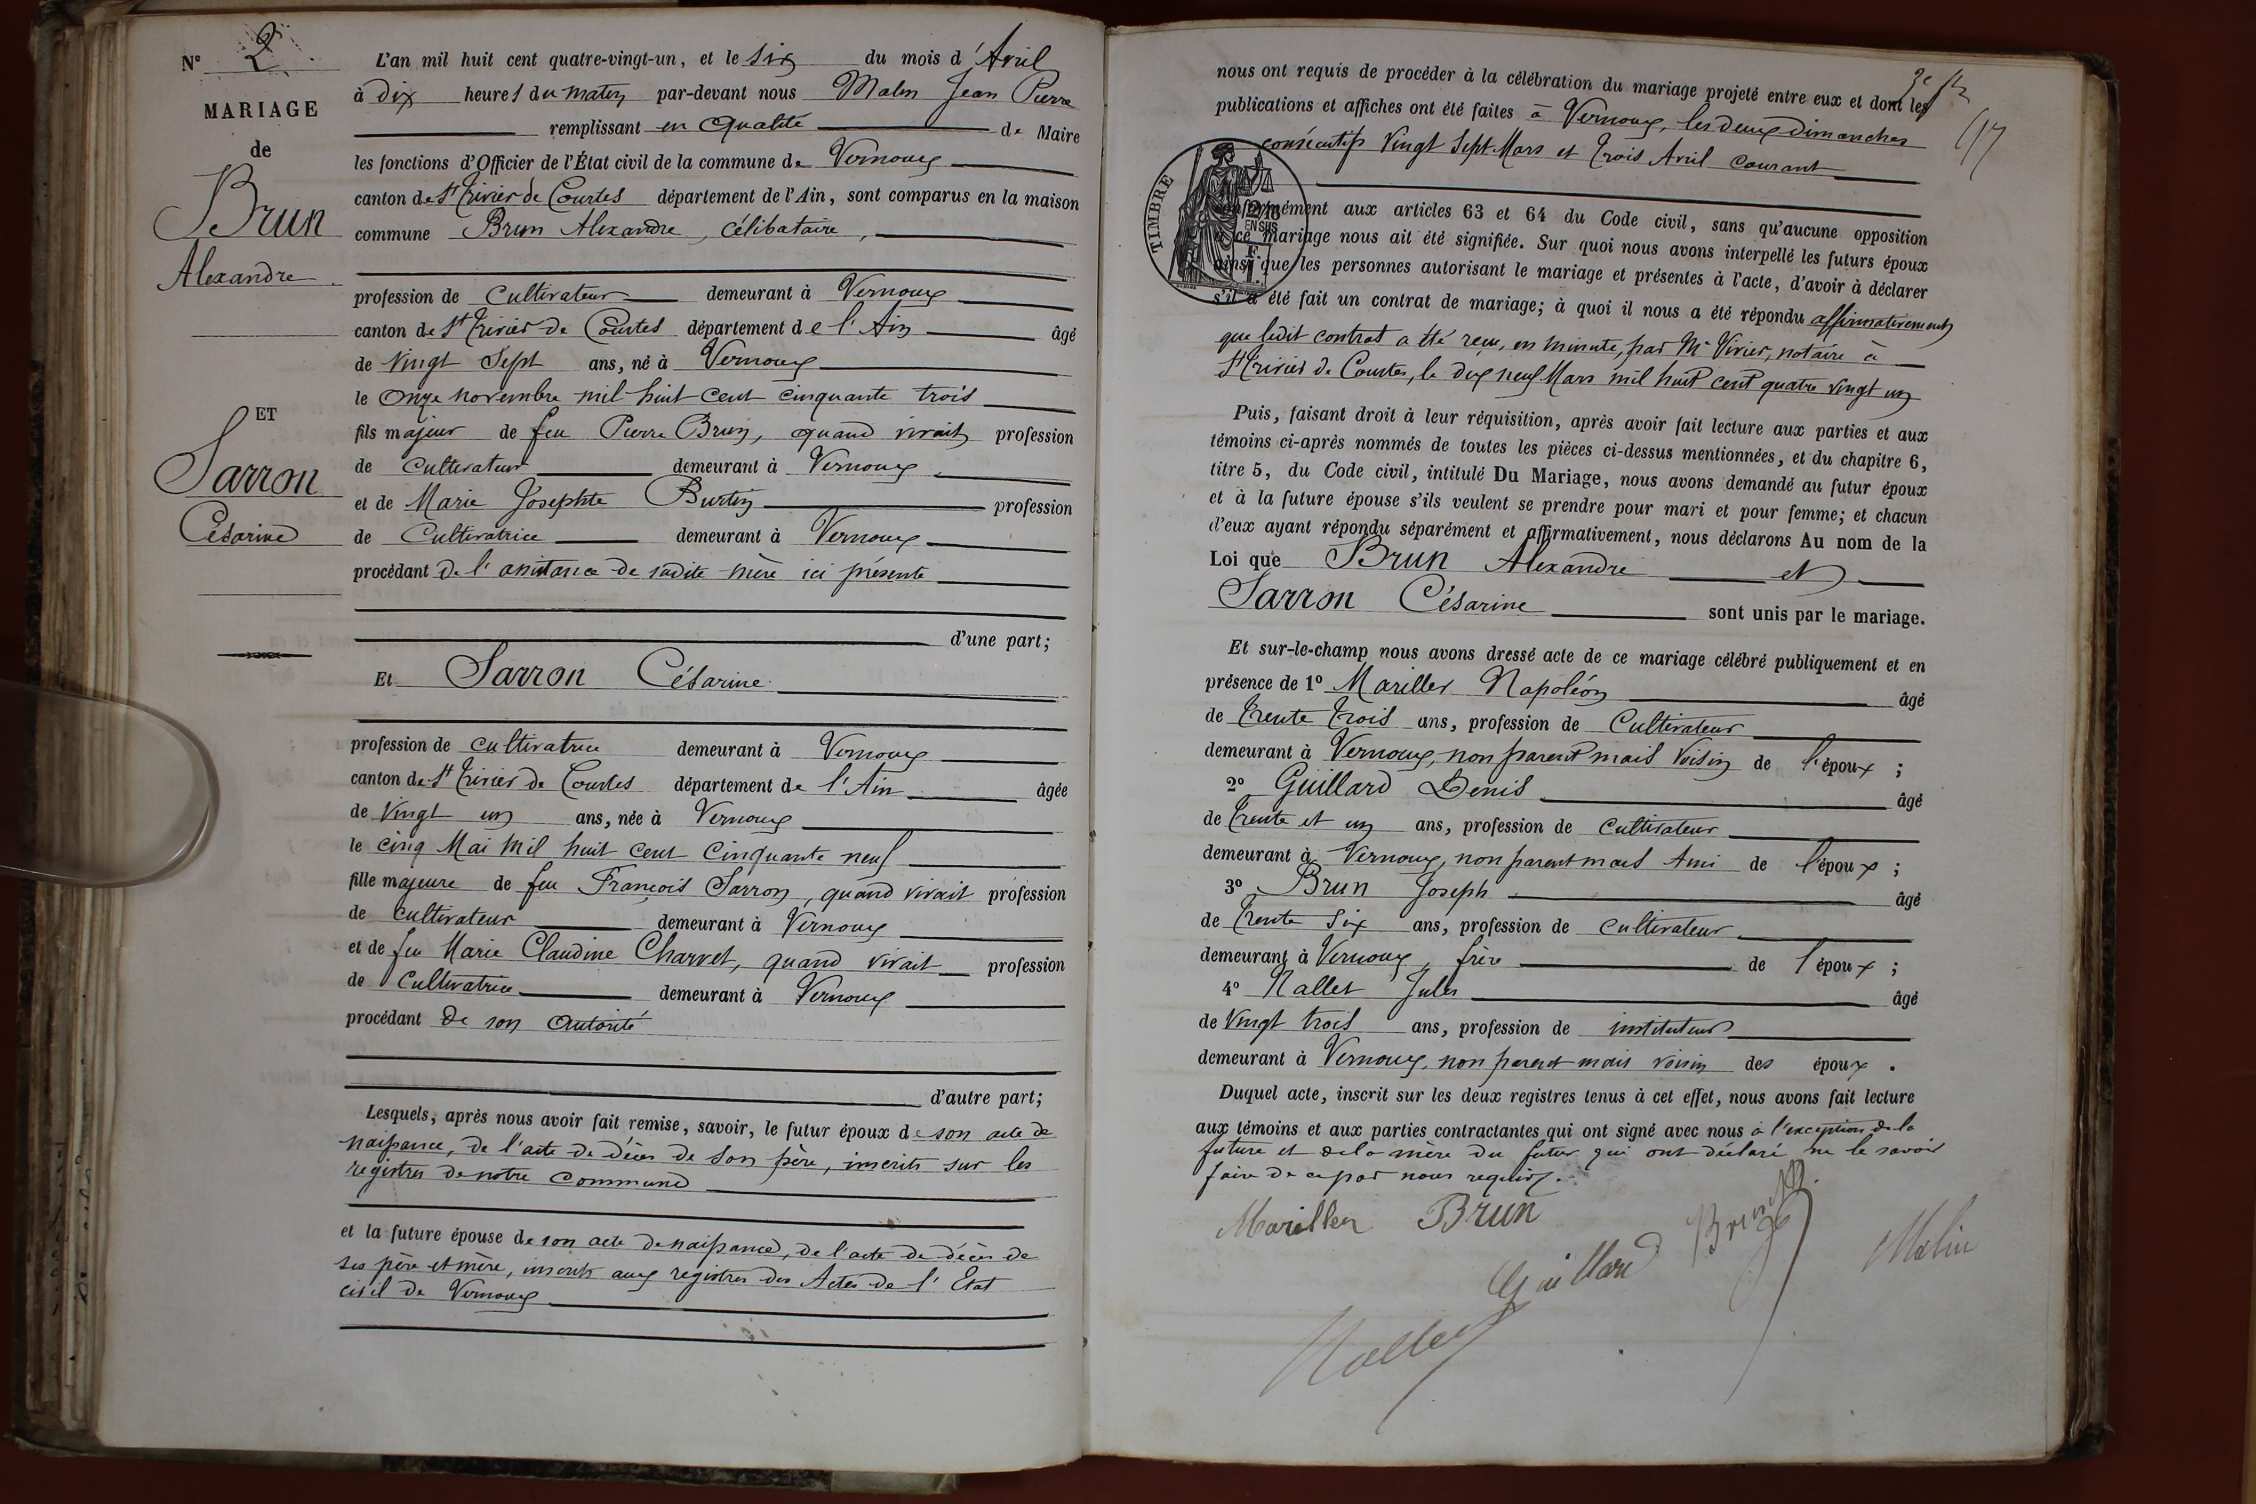 N° 2
MARIAGE
de
Brun
Alexandre
ET
Sarron
Césarine
L'an mil huit cent quatre-vingt-un, et le six du mois d'Avril
à dix heures du matin par-devant nous Malin Jean Pierre
remplissant en qualité de Maire
les fonctions d'Officier de l'État civil de la commune de Vernoux
canton de St Trivier de Courtes département de l'Ain, sont comparus en la maison
commune Brun Alexandre, célibataire,
profession de cultivateur demeurant à Vernoux
canton de St Trivier de Courtes département de l'Ain âgé
de vingt sept ans, né à Vernoux
le onze novembre mil huit cent cinquante trois
fils majeur de feu Pierre Brun, quand vivait profession
de cultivateur demeurant à Vernoux
et de Marie Josephte Burtin profession
de cultivatrice demeurant à Vernoux
procédant de l'assistance de sadite mère ici présente
d'une part;
Et Sarron Césarine
profession de cultivatrice demeurant à Vernoux
canton de St Trivier de Courtes département de l'Ain âgée
de vingt un ans, née à Vernoux
le cinq Mai mil huit cent cinquante neuf
fille majeure de feu François Sarron, quand vivait profession
de cultivateur demeurant à Vernoux
et de feu Marie Claudine Charvet, quand vivait profession
de cultivatrice demeurant à Vernoux
procédant de son autorité
d'autre part;
Lesquels, après nous avoir fait remise, savoir, le futur époux de son acte de
naissance, de l'acte de décès de son père, inscrits sur les
registres de notre commune
et la future épouse de son acte de naissance, de l'acte de décès de
ses père et mère, inscrits aux registres des Actes de l'Etat
civil de Vernoux
nous ont requis de procéder à la célébration du mariage projeté entre eux et dont les
publications et affiches ont été faites à Vernoux, les deux dimanches
consécutifs vingt sept Mars et trois Avril courant
TIMBRE
conformément aux articles 63 et 64 du Code civil, sans qu'aucune opposition
à ce mariage nous ait été signifiée. Sur quoi nous avons interpellé les futurs époux
ainsi que les personnes autorisant le mariage et présentes à l'acte, d'avoir à déclarer
s'il a été fait un contrat de mariage; à quoi il nous a été répondu affirmativement
que ledit contrat a été reçu, en minute, par Me Vivier, notaire à
St Trivier de Courtes, le dix neuf Mars mil huit cent quatre vingt un
Puis, faisant droit à leur réquisition, après avoir fait lecture aux parties et aux
témoins ci-après nommés de toutes les pièces ci-dessus mentionnées, et du chapitre 6,
titre 5, du Code civil, intitulé Du Mariage, nous avons demandé au futur époux
et à la future épouse s'ils veulent se prendre pour mari et pour femme; et chacun
d'eux ayant répondu séparément et affirmativement, nous déclarons Au nom de la
Loi que Brun Alexandre et
Sarron Césarine sont unis par le mariage.
Et sur-le-champ nous avons dressé acte de ce mariage célébré publiquement et en
présence de 1° Mariller Napoléon âgé
de trente trois ans, profession de cultivateur
demeurant à Vernoux, non parent mais voisin de l'époux;
2° Guillard Denis âgé
de trente et un ans, profession de cultivateur
demeurant à Vernoux, non parent mais Ami de l'époux;
3° Brun Joseph âgé
de trente six ans, profession de cultivateur
demeurant à Vernoux, frère de l'époux;
4° Nallet Jules âgé
de vingt trois ans, profession de instituteur
demeurant à Vernoux, non parent mais voisin des époux.
Duquel acte, inscrit sur les deux registres tenus à cet effet, nous avons fait lecture
aux témoins et aux parties contractantes qui ont signé avec nous à l'exception de la
future et de la mère du futur qui ont déclaré ne le savoir
faire de ce par nous requis.
Mariller Brun
Guillard Brun Malin
Nallet